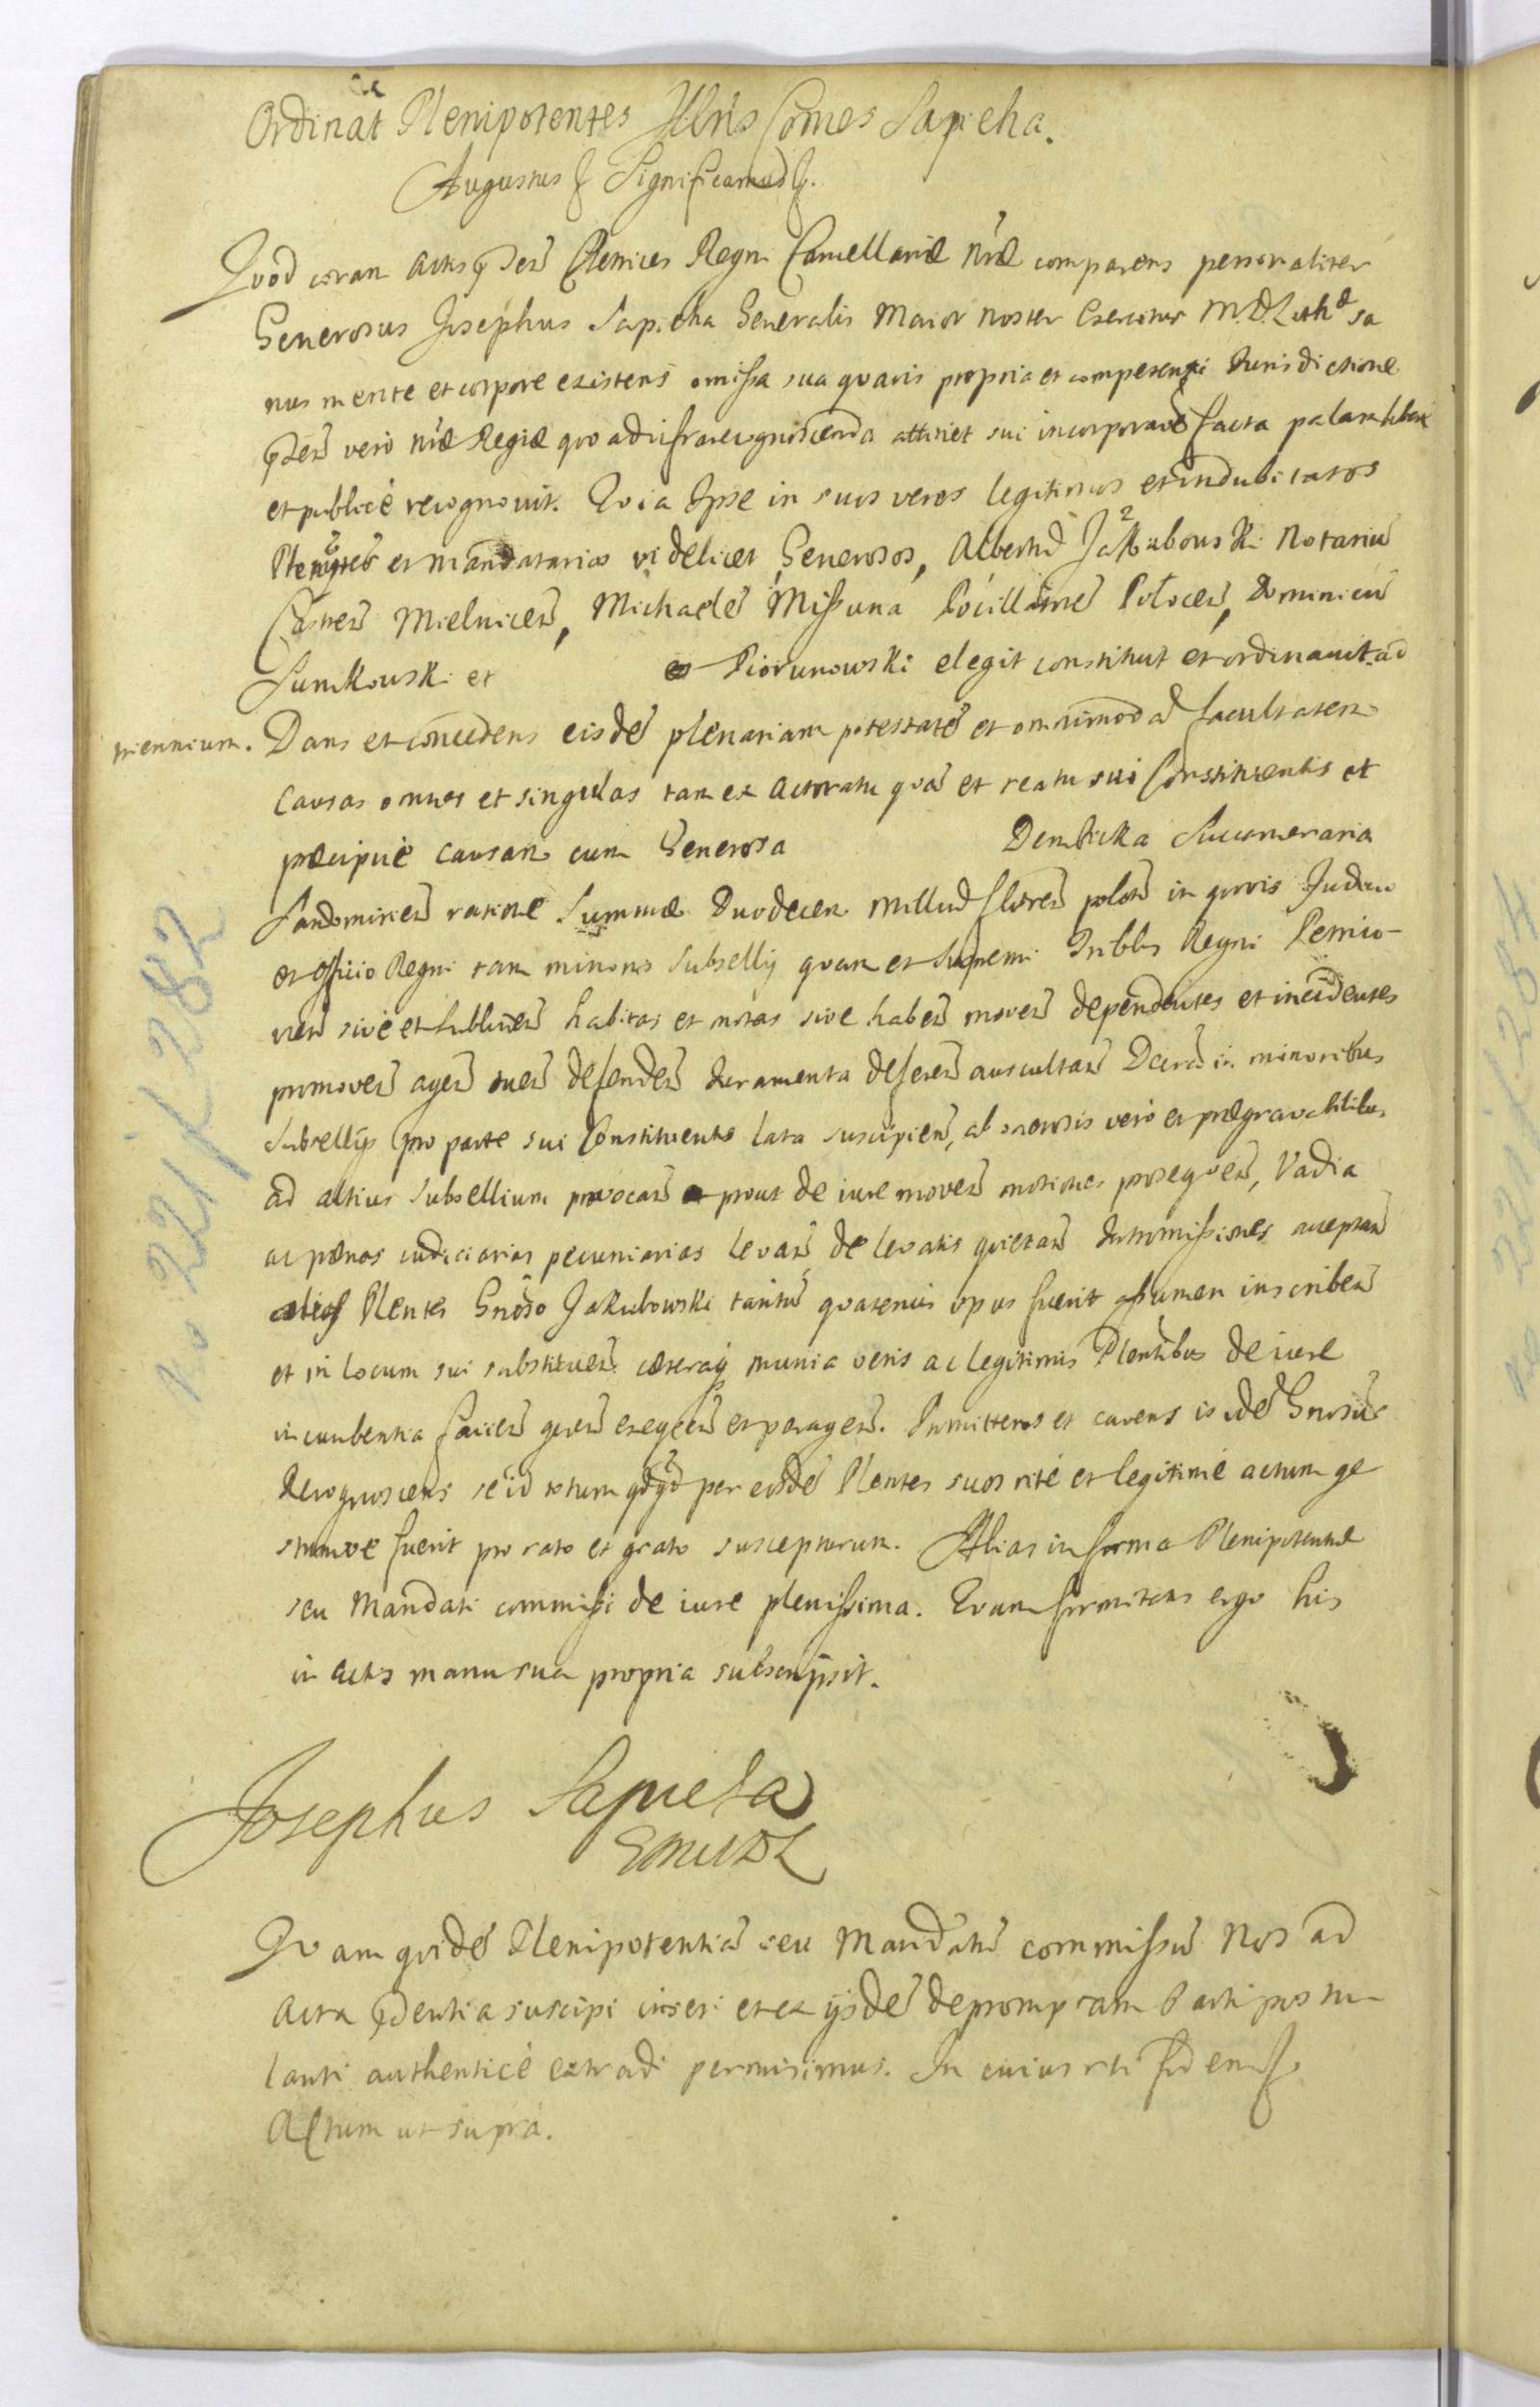 Ordinat Plenipotentes Illris Comes Sapieha.
Augustus Significamus
Quod coram Actis Metrices Regni Cancellariæ nræ comparens personaliter
Generosus Josephus Sapieha Generalis Maior noster Exercitus M. D. Lith sa
nus mente et corpore existens omissa sua quavis propria et competenti Jurisdictione
vero nræ Regiæ quo ad infra recognoscenda attinet sui incorporave facta palam libere
et publicè recognovit. Quia Ipse in suos veros legitimos et indubitatos
et Mandatarios videlicet Generosos, Albertu Jakubouski Notariu
Castren Mielnicen, Michaele Missuna Pocillatore Polocen, Dominicu
Sunkouski et Piorunowski elegit constituit et ordinauit ad
triennium. Dans et concedens eisde plenariam potestate et omnimoda facultatem
causas omnes et singulas tam ex actoratu qua et reatu sui Constituentis et
præcipuè causam cum Generosa Dembicka Succameraria
Sandomirien ratione Summæ Duodecem Milliu floren polon in quovis Judicio
et officio Regni tam minoris Subsellij quam et Supremi Tribblis Regni Petrico-
vien sivè et Lublinen habitas et motas sive haben moven dependentes et incidentes
promoven agen tuen defenden Juramenta deferen auscultan Decreta in minoribus
Subsellijs pro parte sui Constituentis lata suscipien, ab onerosis verò et prægravabilibus
ad altius Subsellium provocan prout de iure moven motiones prosequen, Vadia
ac pænas iudiciarias pecuniarias levan de levatis quietan Intromissiones acceptan
Plentes Gnoso Jakubowski tantu quatenus opus fuerit inscriben
et in locum sui substituen cæteraq munia veris ac legitimis Plentibus de iure
incumbentia facien geren exeqen et peragen. Promittens et cavens is ide Gnosus
Recognoscens se id totum per eosde Plentes suos ritè et legitimè actum ge
stumve fuerit pro rato et grato suscepturum. Alias in forma Plenipotentiæ
seu Mandati commissi de iure plenissima. Quam firmitans ergo his
in Actis manu sua propria subscripsit.
Josephus Sapieha
Quam quide Plenipotentia seu Mandatu commissu Nos ad
Acta suscipi inseri et ex ijsde depromptam Parti postu-
lanti authenticè extradi permisimus. In cuius rei fidem
Actum ut supra.
No 221/282